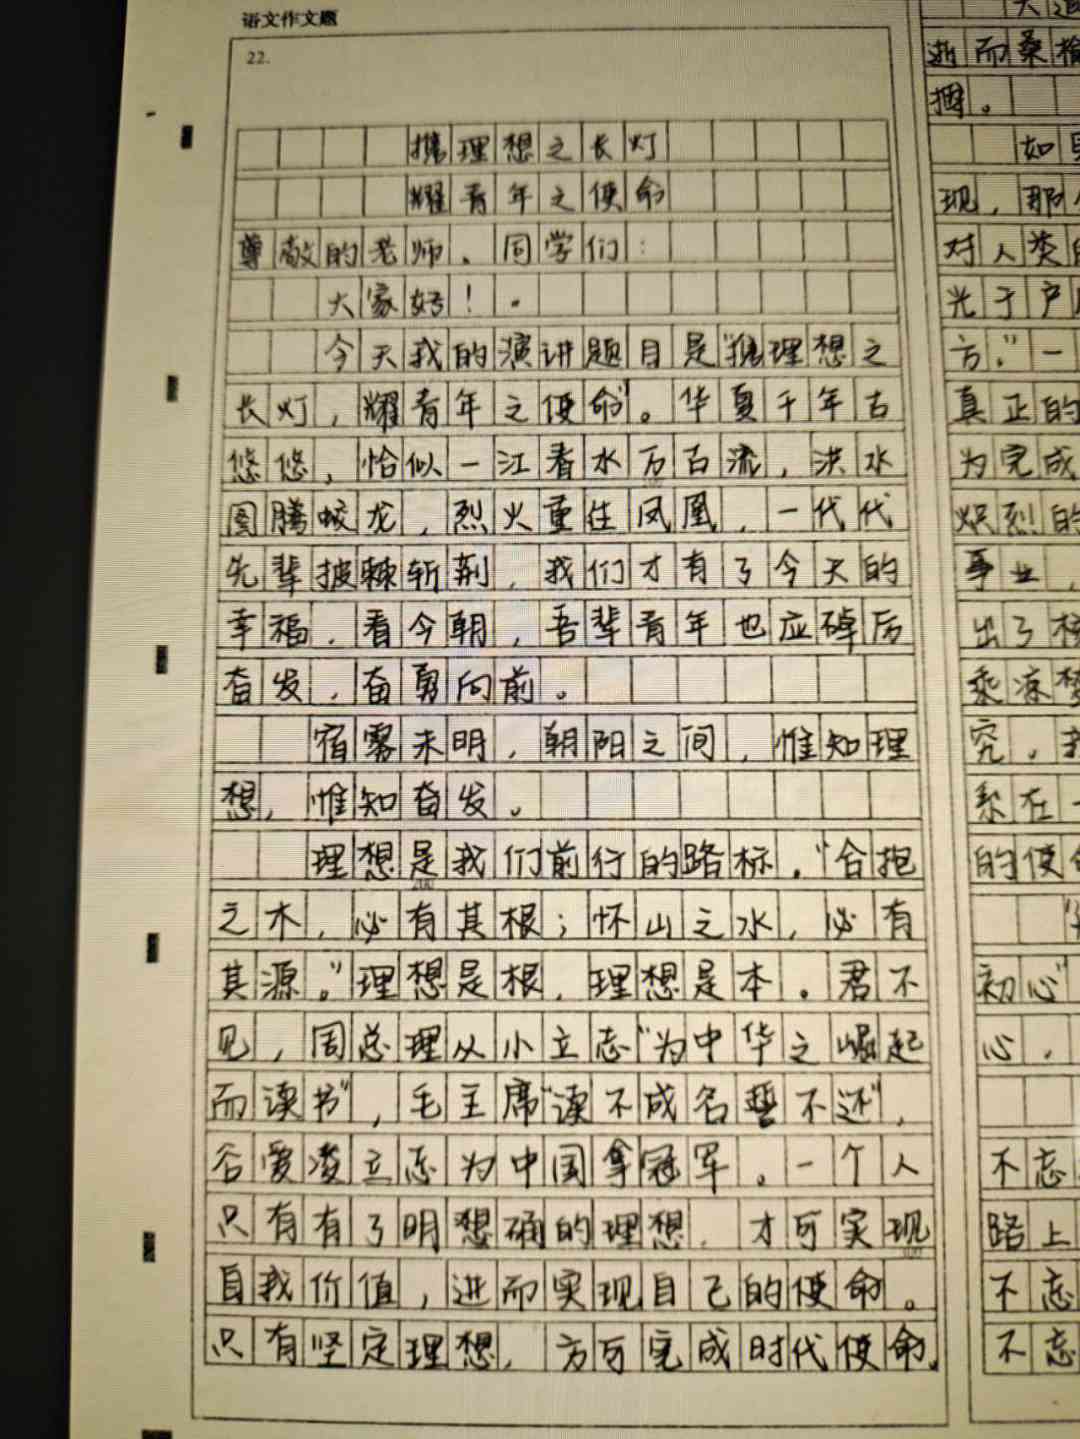 语文作文题
22.
携理想之长灯
耀青年之使命
尊敬的老师、同学们：
大家好！。
今天我的演讲题目是"携理想之
长灯，耀青年之使命"。华夏千年古
悠悠，恰似一江春水万古流，洪水
图腾蛟龙，烈火重生凤凰，一代代
先辈披棘斩荆，我们才有了今天的
幸福，看今朝，吾辈青年也应踔厉
奋发，奋勇向前。
宿雾未明，朝阳之间，惟知理
想，惟知奋发。
理想是我们前行的路标。"合抱
200
之木，必有其根；怀山之水，必有
其源。"理想是根，理想是本。君不
见，周总理从小立志"为中华之崛起
而读书"，毛主席"读不成名誓不还"，
谷爱凌立志为中国拿冠军。一个人
只有有了明想确的理想，才可实现
300
自我价值，进而实现自己的使命。
只有坚定理想，方可完成时代使命。
逝而桑榆
捆。
如果
现，那
对人类的
光于户
方。"一
真正的
为完成
炽烈的
事业，
出了
乘凉
究。
系在一
的使命
初心"
心，
不忘
路上
不忘
不忘